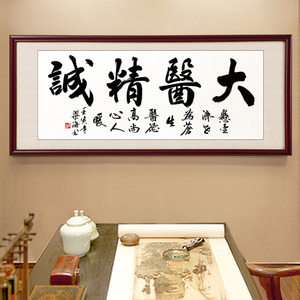 大醫精誠
懸壺
濟世
為蒼
生
醫德
高尚
心人
暖